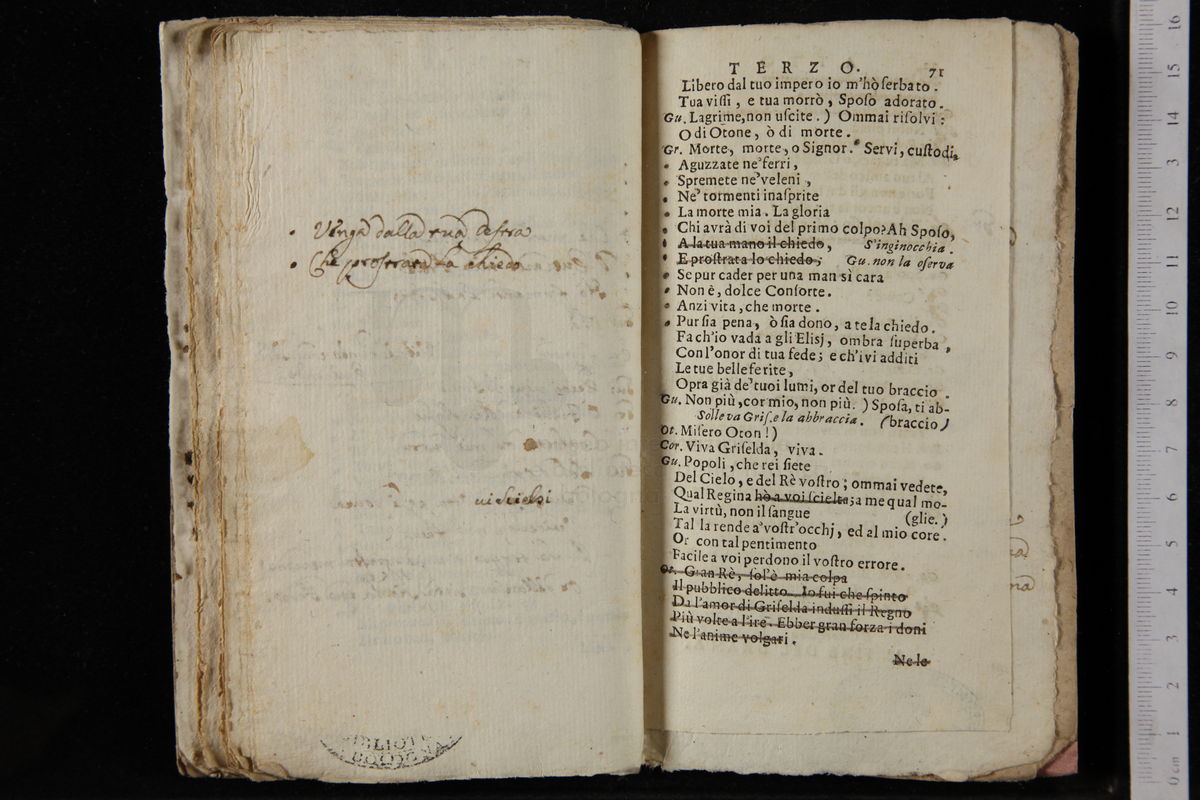 Venga dalla tua destra
Che prostrata la chiedo
vi scielsi
BIBLIOT
BOLOGNA
TERZO. 71
Libero dal tuo impero io m'hò ſerbato.
Tua viſſi, e tua morrò, Spoſo adorato.
Gu. Lagrime, non uſcite.) Ommai riſolvi:
O di Otone, ò di morte.
Gr. Morte, morte, o Signor. Servi, cuſtodi,
Aguzzate ne' ferri,
Spremete ne' veleni,
Ne' tormenti inaſprite
La morte mia. La gloria
Chi avrà di voi del primo colpo? Ah Spoſo,
A la tua mano il chiedo, S'inginocchia.
E proſtrata lo chiedo; Gu. non la oſerva
Se pur cader per una man sì cara
Non è, dolce Conſorte.
Anzi vita, che morte.
Pur ſia pena, ò ſia dono, a te la chiedo.
Fa ch'io vada a gli Elisj, ombra ſuperba,
Con l'onor di tua fede; e ch'ivi additi
Le tue belle ferite,
Opra già de' tuoi lumi, or del tuo braccio.
Gu. Non più, cor mio, non più.) Spoſa, ti ab-
Solleva Griſ. e la abbraccia. (braccio)
Ot. Miſero Oton!)
Cor. Viva Griſelda, viva.
Gu. Popoli, che rei ſiete
Del Cielo, e del Rè voſtro; ommai vedete,
Qual Regina hò a voi ſcielta; a me qual mo-
La virtù, non il ſangue (glie.)
Tal la rende a' voſtr'occhj, ed al mio core.
Or con tal pentimento
Facile a voi perdono il voſtro errore.
Ot. Gran Rè, ſol'è mia colpa
Il pubblico delitto. Io fui che ſpinto
Da l'amor di Griſelda induſſi il Regno
Più volte a l'ire. Ebber gran forza i doni
Ne l'anime volgari.
Ne le